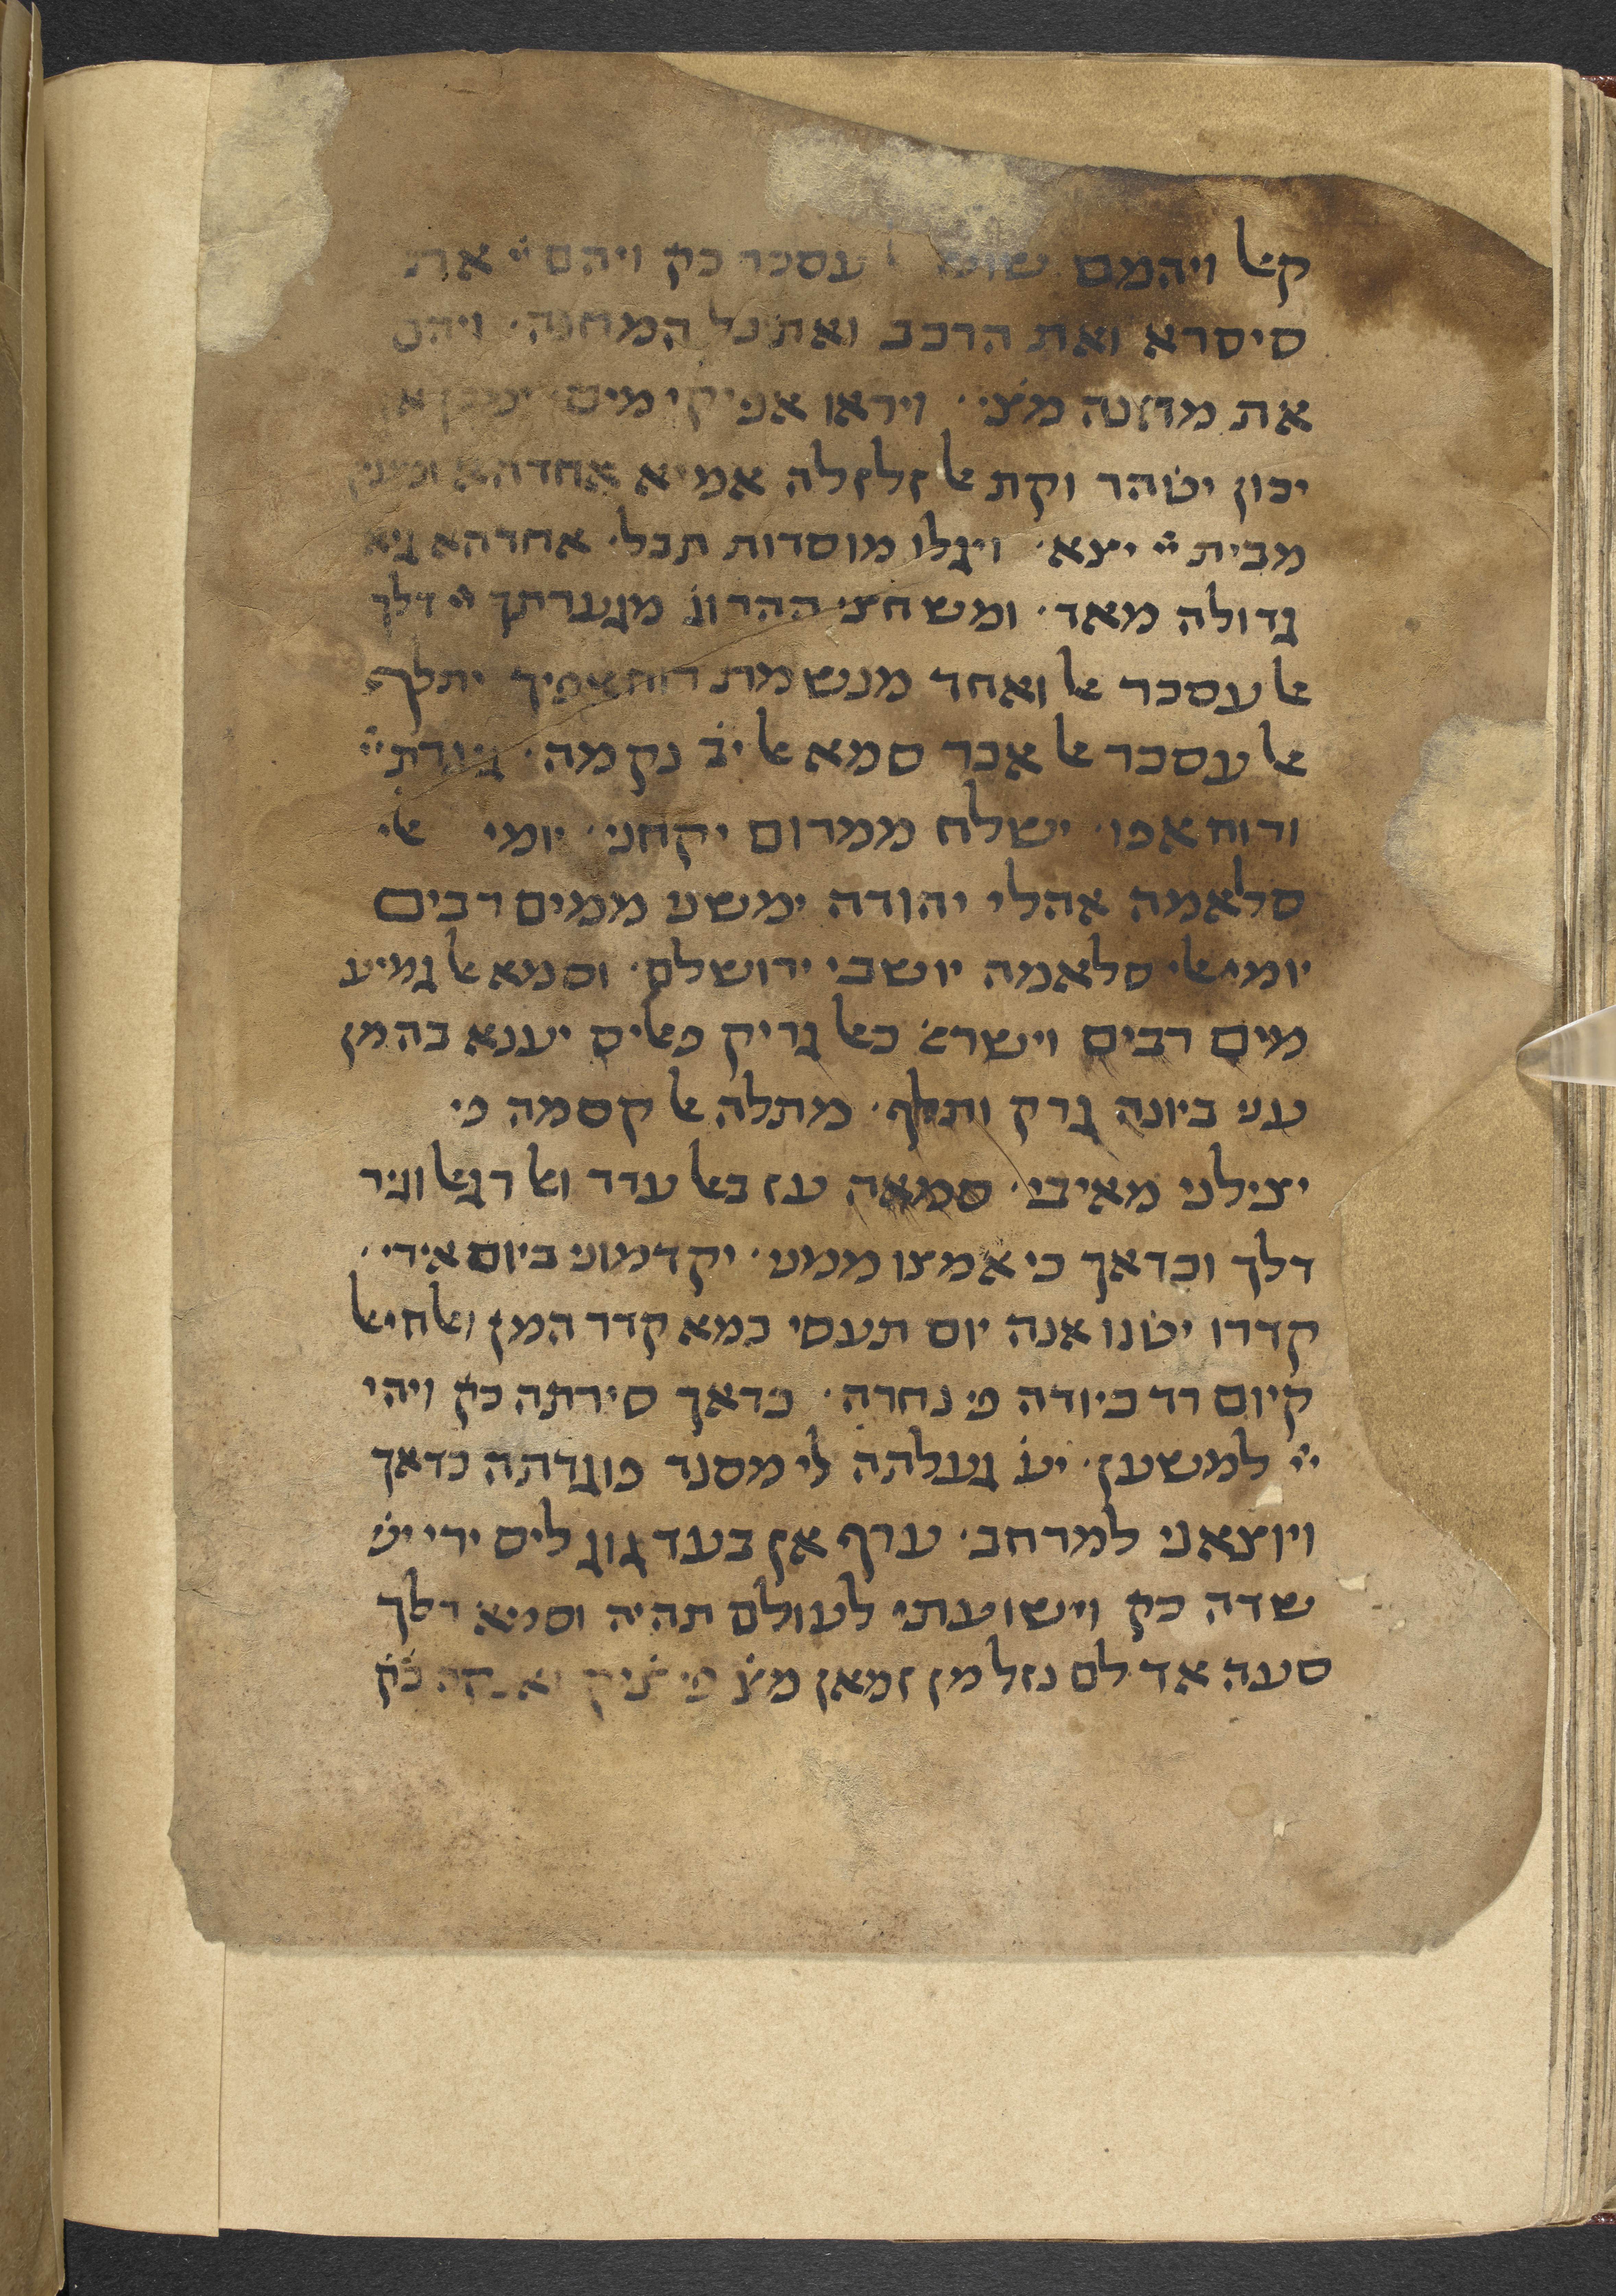 קאל ויהמם עסכר כק ויהם יי את
סיסרא ואת הרכב ואת כל המחנה· ויהם
את מחנה מצ׳· ויראו אפיקי מים ימכן
יכון יטהר וקת אל זלזלה אמא אחדהא
מבית יי יצא· ויגלו מוסדות תבל· אחדהא
גדולה מאד· ומשחית ההרון מגערתך יי דלך
אל עסכר אל ואחד מנשמת רוח אפיך יתלף
אל עסכר אל אכר סמא אל יב נקמה· גערת יי
ורוח אפו· ישלח ממרום יקחני· יומי אלי
סלאמה אהלי יהודה ימשני ממים רבים
יומי אלי סלאמה יושבי ירושלם· וסמא אל גמיע
מים רבים וישראל כאל גריק פאליס יענא בהמן
עני ביונה גרק ותלף· מתלה אל קסמה פי
יצילני מאיבי· סמאה עז באל עדד ואל רגאל וגיר
דלך וכדאך כי אמצו ממני· יקדמוני ביום אידי·
קדרו יטנו אנה יום תעסי כמא קדר המן ואל חיאל
קיום רד כיודה פי נחרה· כדאך סירתה כק ויהי
יי למשען· יעני געלתה לי מסנד פוגדתה כדאך
ויוצאני למרחב· ערף אן בעד גוג ליס ירי יש
שדה כק וישועתי לעולם תהיה וסמא דלך
סעה אד לם נזל מן זמאן מצ פי ציק